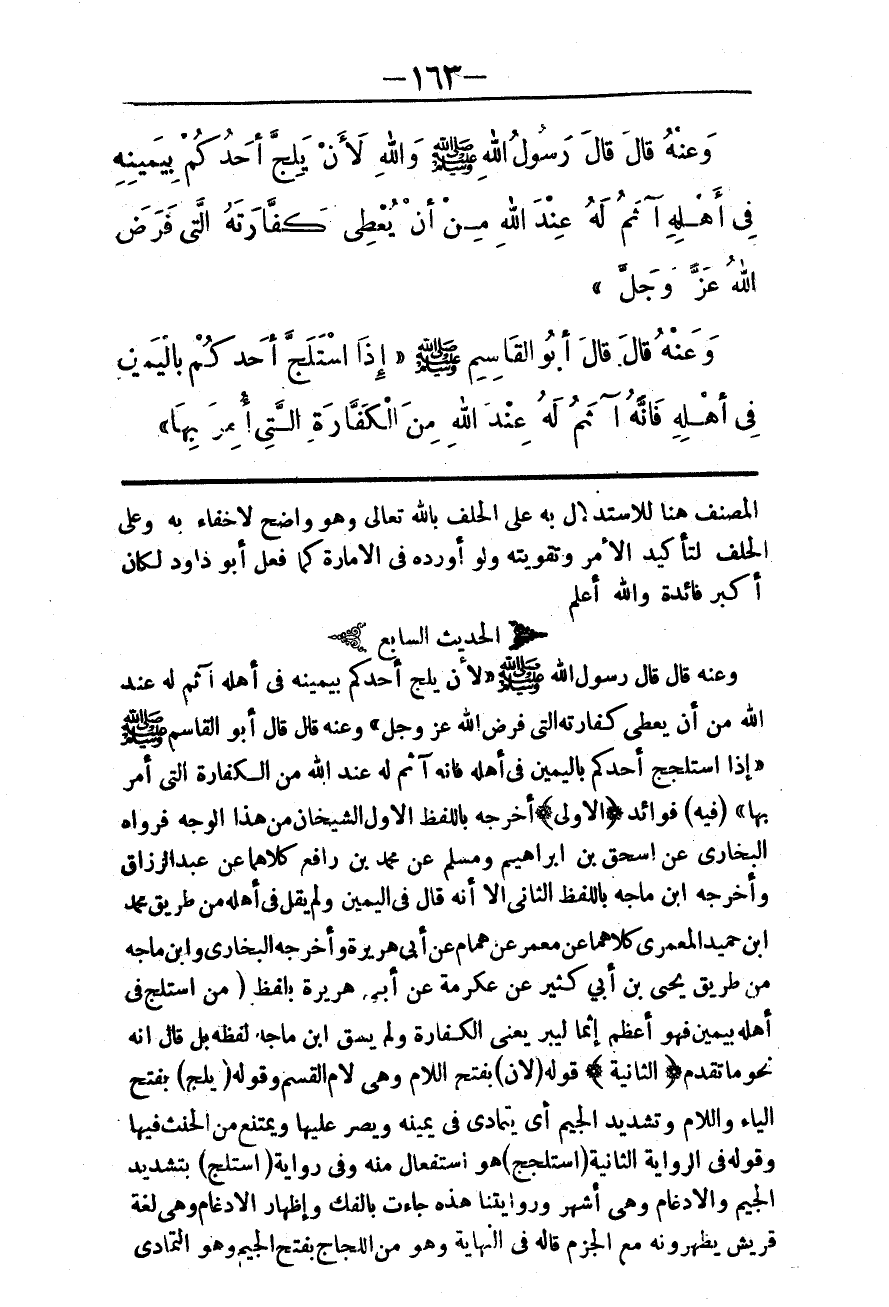 -١٦٣-
وَعَنْهُ قَالَ قَالَ رَسُولُ اللهِ ﷺ وَاللهِ لَأَنْ يَلِجَّ أَحَدُكُمْ بِيَمِينِهِ
فِى أَهْلِهِ آثَمُ لَهُ عِنْدَ اللهِ مِنْ أَنْ يُعْطِى كَفَّارَتَهُ الَّتِى فَرَضَ
اللهُ عَزَّ وَجَلَّ »
وَعَنْهُ قَالَ قَالَ أَبُو القَاسِمِ ﷺ « إِذَا اسْتَلَجَّ أَحَدكُمْ بِالْيَمِينِ
فِى أَهْلِهِ فَانَّهُ آثَمُ لَهُ عِنْدَ اللهِ مِنَ الْكَفَّارَةِ الَّتِى أُمِرَ بِهَا»
المصنف هنا للاستدلال به على الحلف بالله تعالى وهو واضح لاخفاء به وعلى
الحلف لتأكيد الأمر وتقويته ولو أورده فى الامارة كما فعل أبو داود لكان
أكبر فائدة والله أعلم
الحديث السابع
وعنه قال قال رسول الله ﷺ «لأن يلج أحدكم بيمينه فى أهله آثم له عند
الله من أن يعطى كفارته التى فرض الله عز وجل» وعنه قال قال أبو القاسم ﷺ
«إذا استلجج أحدكم باليمين فى أهله فانه آثم له عند الله من الكفارة التى أمر
بها» (فيه) فوائد ﴿الاولى﴾ أخرجه باللفظ الاول الشيخان من هذا الوجه فرواه
البخارى عن اسحق بن ابراهيم ومسلم عن محمد بن رافع كلاهما عن عبد الرزاق
وأخرجه ابن ماجه باللفظ الثانى الا أنه قال فى اليمين ولم يقل فى أهله من طريق محمد
ابن حميد المعمرى كلاهما عن معمر عن همام عن أبى هريرة وأخرجه البخارى وابن ماجه
من طريق يحيى بن أبي كثير عن عكرمة عن أبى هريرة بلفظ ( من استلج فى
أهله بيمين فهو أعظم إثما ليبر يعنى الكفارة ولم يسق ابن ماجه لفظه بل قال انه
نحو ما تقدم ﴿ الثانية ﴾ قوله (لان) بفتح اللام وهى لام القسم وقوله ( يلج) بفتح
الياء واللام وتشديد الجيم أى يتمادى فى يمينه ويصر عليها ويمتنع من الحنث فيها
وقوله فى الرواية الثانية (استلجج) هو استفعال منه وفى رواية (استلج) بتشديد
الجيم والادغام وهى أشهر وروايتنا هذه جاءت بالفك وإظهار الادغام وهى لغة
قريش يظهرونه مع الجزم قاله فى النهاية وهو من اللجاج بفتح الجيم وهو التمادى